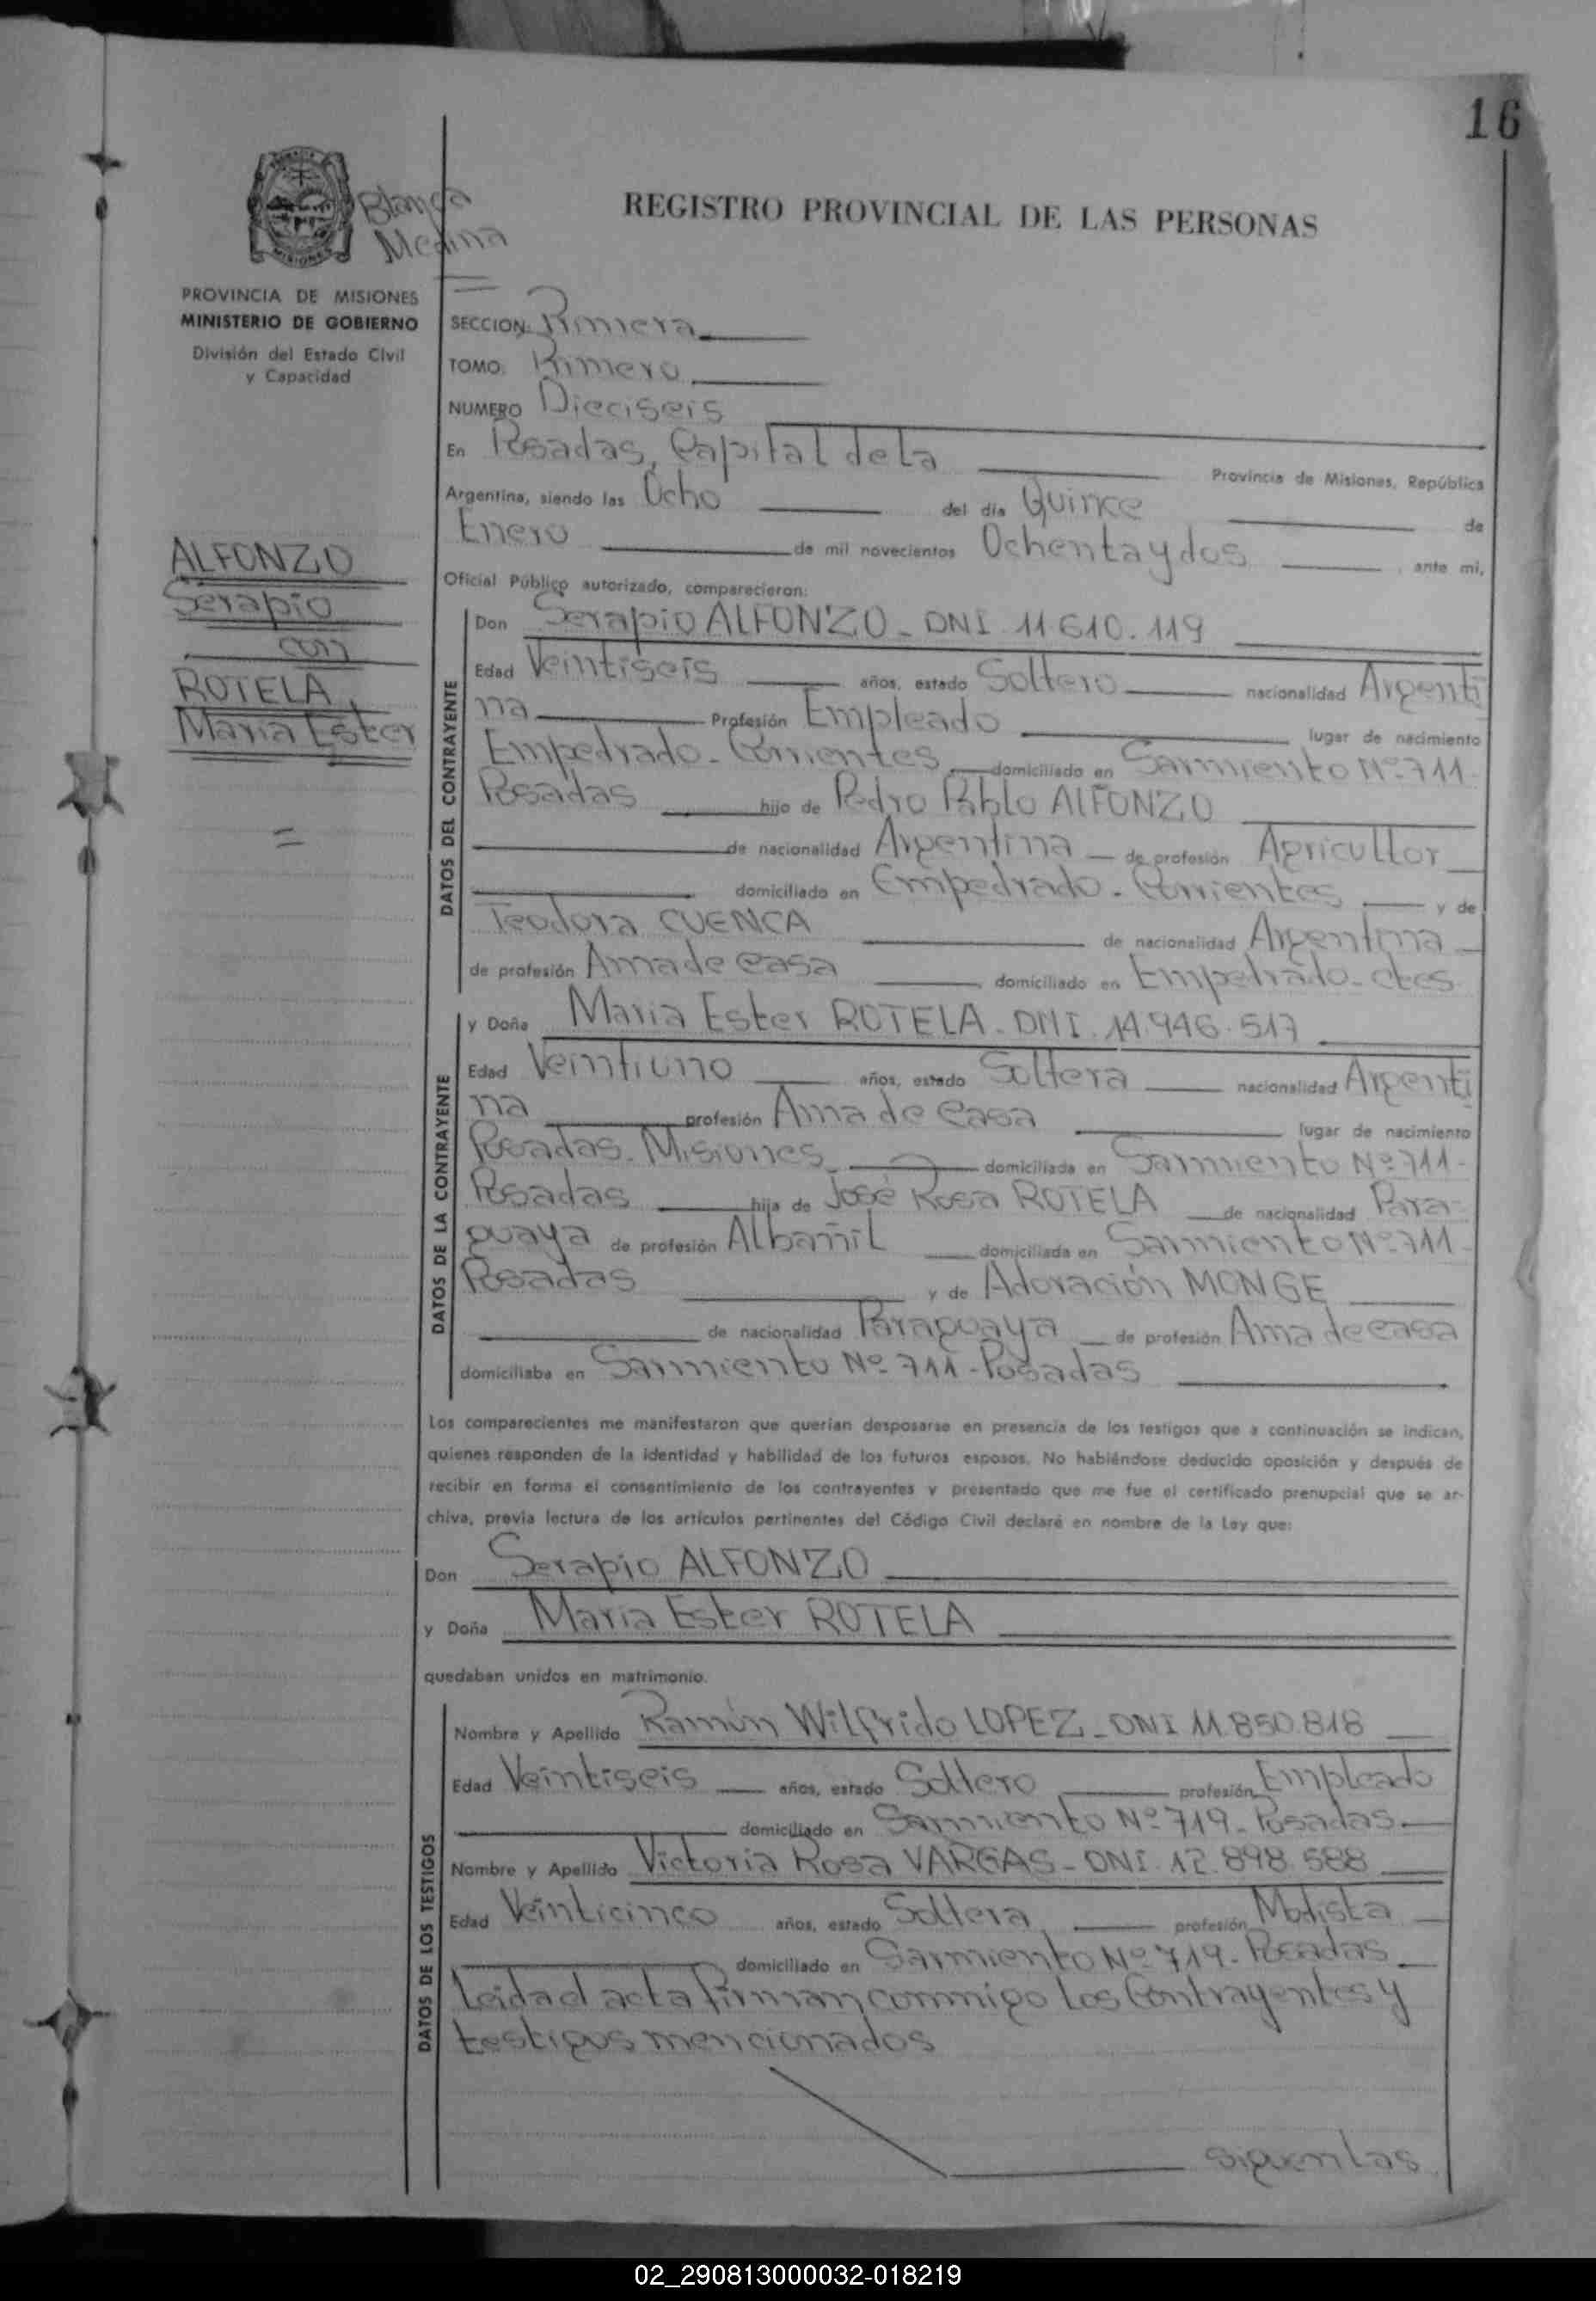 16
Blanca
Medina
REGISTRO PROVINCIAL DE LAS PERSONAS
PROVINCIA DE MISIONES
MINISTERIO DE GOBIERNO
División del Estado Civil
y Capacidad
SECCION: Primera
TOMO: Primero
NUMERO Dieciseis
En Posadas, Capital de La Provincia de Misiones, República
Argentina, siendo las Ocho del día Quince de
Enero de mil novecientos Ochenta y dos, ante mi,
Oficial Público autorizado, comparecieron:
ALFONZO
Serapio
con
ROTELA,
Maria Ester
=
DATOS DEL CONTRAYENTE
Don Serapio ALFONZO - DNI 11.610.119
Edad Veintiseis años, estado Soltero nacionalidad Argenti
na Profesión Empleado lugar de nacimiento
Empedrado - Corrientes domiciliado en Sarmiento Nº 711 -
Posadas hijo de Pedro Pablo ALFONZO
de nacionalidad Argentina de profesión Agricultor
domiciliado en Empedrado - Corrientes y de
Teodora CUENCA de nacionalidad Argentina
de profesión Ama de Casa domiciliado en Empetrado - ctes
DATOS DE LA CONTRAYENTE
y Doña Maria Ester ROTELA - DNI. 14.946.517
Edad Veintiuno años, estado Soltera nacionalidad Argenti
na profesión Ama de Casa lugar de nacimiento
Posadas - Misiones domiciliada en Sarmiento Nº 711 -
Posadas hija de José Rosa ROTELA de nacionalidad Para
guaya de profesión Albañil domiciliada en Sarmiento Nº 711 -
Posadas y de Adoración MONGE
de nacionalidad Paraguaya de profesión Ama de casa
domiciliaba en Sarmiento Nº 711 - Posadas
Los comparecientes me manifestaron que querían desposarse en presencia de los testigos que a continuación se indican,
quienes responden de la identidad y habilidad de los futuros esposos. No habiéndose deducido oposición y después de
recibir en forma el consentimiento de los contrayentes y presentado que me fue el certificado prenupcial que se ar-
chiva, previa lectura de los artículos pertinentes del Código Civil declaré en nombre de la Ley que:
Don Serapio ALFONZO
y Doña Maria Ester ROTELA
quedaban unidos en matrimonio.
DATOS DE LOS TESTIGOS
Nombre y Apellido Ramón Wilfrido LOPEZ - DNI 11.850.818
Edad Veintiseis años, estado Soltero profesión Empleado
domiciliado en Sarmiento Nº 719 - Posadas
Nombre y Apellido Victoria Rosa VARGAS - DNI. 12.898.588
Edad Veinticinco años, estado Soltera profesión Modista
domiciliado en Sarmiento Nº 719 - Posadas
Leida el acta firman conmigo Los Contrayentes y
testigos mencionados
siguen las
02_290813000032-018219